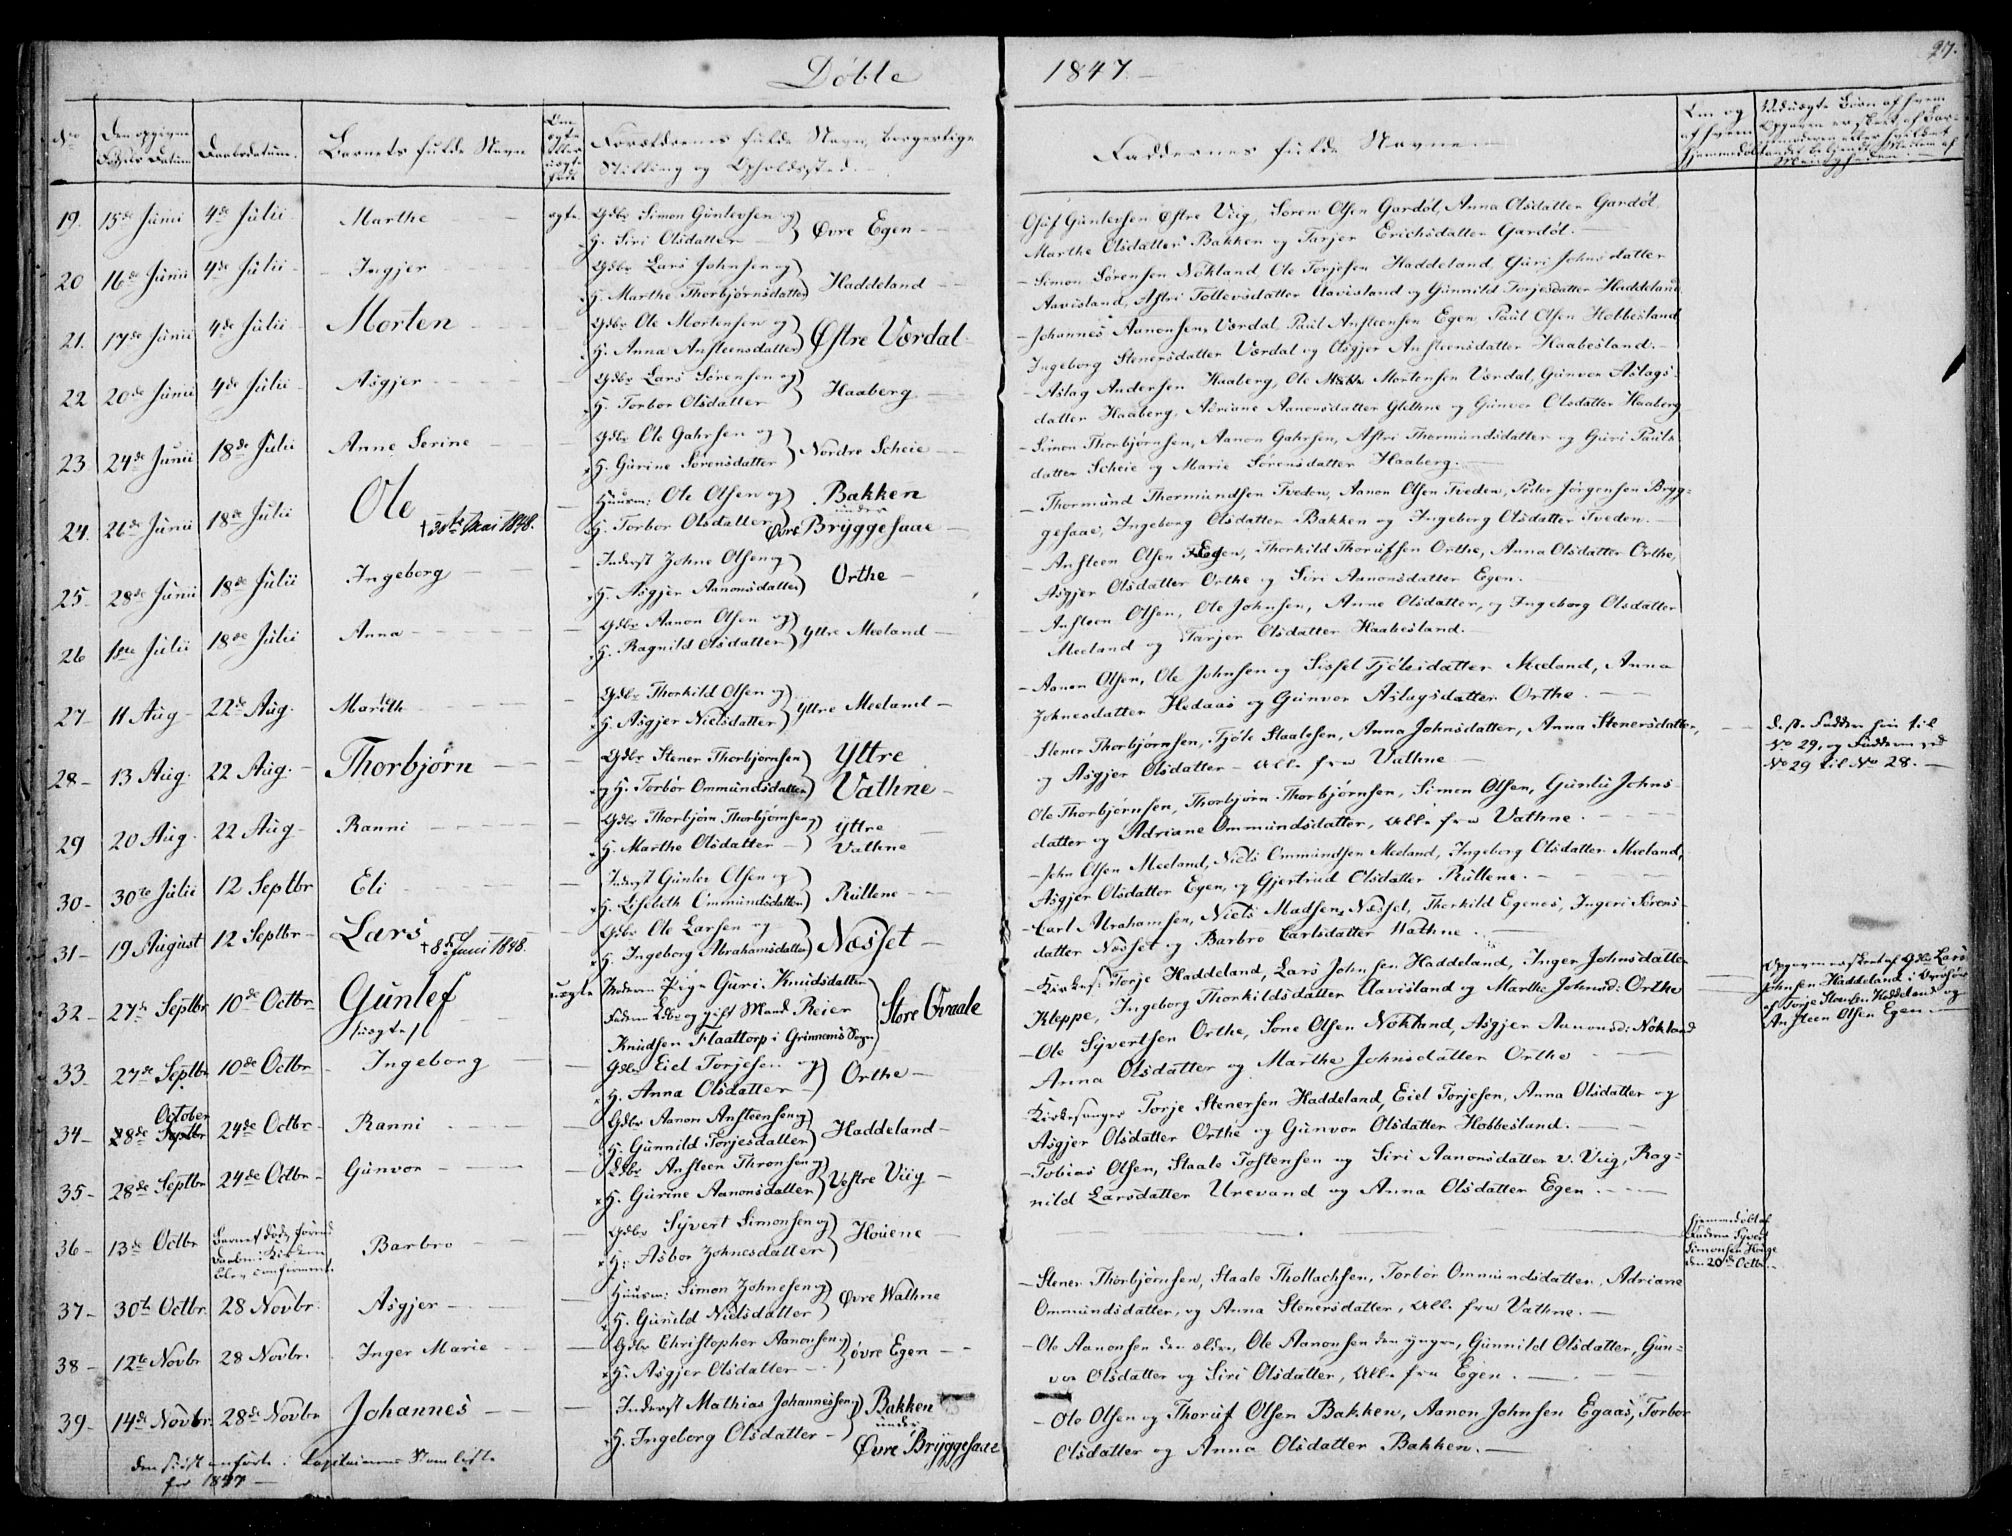 Döbte 1847.
27.
No
Den opgivne Fødsels Datum
Daabsdatum.
Barnets fulde Navn
Om ægte eller uægte født
Forældrenes fulde Navn, borgerlige Stilling og Opholdssted.
Faddernes fulde Navne.
19. 15de Junii 4de Julii Marthe ægte Gdbr Simon Gunlevsen og H. Siri Olsdatter Øvre Egen
Marthe Olsdatter Bakken og Tarjer Erichsdatter Gardøl.
20 16de Junii 4de Julii Ingjer Gdbr Lars Johnsen og H. Marthe Thorbjørnsdatter Haddeland
Simon Sørensen Nökland, Ole Torjesen Haddeland, Guri Johnsdatter
Aavisland, Astri Tollevsdatter Aavisland og Gunnild Torjesdatter Haddeland.
21. 17de Junii 4de Julii Morten Gdbr Ole Mortensen og H. Anna Ansteensdatter Østre Værdal
Johannes Aanonsen Værdal, Paul Ansteensen Egen, Paul Olsen Hobbesland
Ingeborg Stenersdatter Værdal og Asgjer Ansteensdatter Haabesland.
22 20de Junii 4de Julii Asgjer Gdbr Lars Sørensen og H. Torbor Olsdatter Haaberg
Aslag Andersen Haaberg, Ole Mortensen Værdal, Gunvor Aslags-
datter Haaberg, Adriane Aanonsdatter Glethne og Gunvor Olsdatter Haaberg
23 24de Junii 18de Julii Anne Serine Gdbr Ole Gahrsen og H. Gurine Sørensdatter Nordre Scheie
Simon Thorbjørnsen, Aanon Gahrsen, Astri Thormundsdatter og Guri Pauls-
datter Scheie og Marie Sørensdatter Haaberg.
24. 26de Junii 18de Julii Ole † 30te Mai 1848. Huusm: Ole Olsen og H. Torbor Olsdatter Bakken under Øvre Bryggesaae
Thormund Thormundsen Tveden, Aanon Olsen Tveden, Peder Jörgensen Bryg-
gesaae, Ingeborg Olsdatter Bakken og Ingeborg Olsdatter Tveden.
25 28de Junii 18de Julii Ingeborg Inderst Johne Olsen og H. Asgjer Aanonsdatter Orthe
Ansteen Olsen Egen, Thorkild Thorufsen Orthe, Anna Olsdatter Orthe,
Asgjer Olsdatter Orthe og Siri Aanonsdatter Egen.
26 1ste Julii 18de Julii Anna Gdbr Aanon Olsen og H. Ragnild Olsdatter Yttre Meeland
Ansteen Olsen, Ole Johnsen, Anne Olsdatter, og Ingeborg Olsdatter
Meeland og Tarjer Olsdatter Haabesland.
27 11 Aug 22de Aug. Marith Gdbr Thorkild Olsen og H. Asgjer Nielsdatter Yttre Meeland
Aanon Olsen, Ole Johnsen og Sissel Tjölsdatter Meeland, Anna
Johnesdatter Hedaas og Gunvor Aslagsdatter Orthe.
28 13 Aug. 22 Aug. Thorbjørn Gdbr Stener Thorbjørnsen og H. Torbor Ommundsdatter Yttre Vathne
Stener Thorbjørnsen, Tjöle Staalesen, Anna Johnsdatter, Anna Stenersdatter,
og Asgjer Olsdatter - alle fra Vathne
No 29, og Fadderne ved No 29 til No 28.
29 20 Aug. 22 Aug Ranni Gdbr Thorbjørn Thorbjørnsen og H. Marthe Olsdatter Yttre Vathne
Ole Thorbjørnsen, Thorbjørn Thorbjørnsen, Simon Olsen, Gunlu Johns-
datter og Adriane Ommundsdatter, alle fra Vathne.
30 30te Julii 12 Septbr Eli Inderst Gunlev Olsen og H. Liseleth Ommundsdatter Rullene
John Olsen Meeland, Niels Ommundsen Meeland, Ingeborg Olsdatter Meeland,
Asgjer Olsdatter Egen, og Gjertrud Olsdatter Rullene.
31 19 August 12 Septbr Lars † 8de Junii 1848. Gdbr Ole Larsen og H. Ingeborg Abrahamsdatter Næsset
Carl Abrahamsen, Niels Madsen Næsset, Thorkild Egenes, Ingeri Sörens-
datter Næsset og Barbro Carlsdatter Wathne.
32 27de Septbr 10de Octbr Gunlef (uægte) uægte Moderen Pige Guri Knudsdatter Faderen Gdbr og gift Mand Reier Knudsen Flaattorp i Grinnems Sogn Store Øvaale
Kirkes: Torje Haddeland, Lars Johnsen Haddeland, Inger Johnsdatter
Kleppe, Ingeborg Thorkildsdatter Aavisland og Marthe Johnsd: Orthe
Opgaven er skeet af Gdbr Lars Johnsen Haddeland i Overvær af Torje Stensen Haddeland og Ansteen Olsen Egen.
33 27de Septbr 10de Octbr Ingeborg Gdbr Eiel Torjesen og H. Anna Olsdatter Orthe
Ole Syvertsen Orthe, Sone Olsen Nökland, Asgjer Aanonsd: Nökland
Anna Olsdatter og Marthe Johnsdatter Orthe
34 28de October 24de Octbr Ranni Gdbr Aanon Ansteensen og H. Gunnild Torjesdatter Haddeland
Kirkesanger Torje Stenersen Haddeland, Eiel Torjesen, Anna Olsdatter og
Asgjer Olsdatter Orthe og Gunvor Olsdatter Hobbesland.
35 28de Septbr 24de Octbr Gunvor Gdbr Ansteen Thronsen og H. Gurine Aanonsdatter Vestre Viig
Tobias Olsen, Staale Tostensen og Siri Aanonsdatter v. Viig, Rag-
nild Larsdatter Urevand og Anna Olsdatter Egen.
36 13de Octbr Barnet døde førend Daaben i Kirken blev confirmeret. Barbro Gdbr Syvert Simonsen og H. Asbor Johnesdatter Houene
Hjemmedøbt af Faderen Syvert Simonsen Houge den 20de Octbr.
37 30te Octbr 28 Novbr. Asgjer Huusm: Simon Johnesen og H. Gunild Nielsdatter Øvre Wathne
Stener Thorbjørnsen, Staale Thollachsen, Torbor Ommundsdatter, Adriane
Ommundsdatter, og Anna Stenersdatter, alle fra Vathne.
38 12te Novbr 28 Novbr. Inger Marie Gdbr Christopher Aanonsen og H. Asgjer Olsdatter Øvre Egen
Ole Aanonsen den ældre, Ole Aanonsen den yngre, Gunnild Olsdatter, Gun-
vor Olsdatter og Siri Olsdatter, alle fra Egen.
39 14de Novbr. 28de Novbr Johannes Inderst Mathias Johannessen og H. Ingeborg Olsdatter Bakken under Øvre Bryggesaae
Ole Olsen og Thoruf Olsen Bakken, Aanon Johnsen Egaas, Torbor
Olsdatter og Anna Olsdatter Bakken.
for 1847